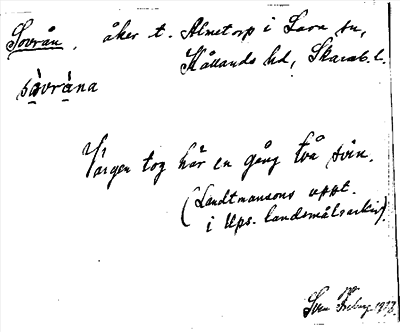 Sovrån, åker t. Almetorp i Lava sn,
Kållands hd, Skarab. l.
såvråna
Vargen tog här en gång två svin.
(Landtmansons uppt.
i Ups. landsmålsarkiv).
Sven 1913.